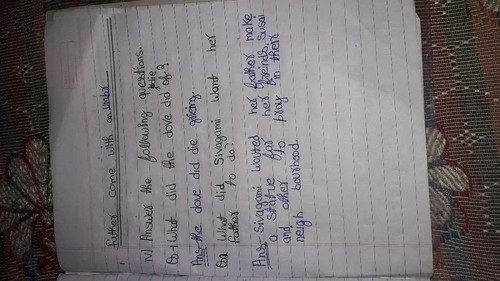 Father come with an umbr
IV) Answer the following questions.
Q-1 What did the dove did die of?
Ans- the dove did die
Q2 What did Sivagami want her
father to do?
Ans- Sivagami wanted her father make
a statue for her freinds, Susai
and other to pray in their
neigh bourhood.